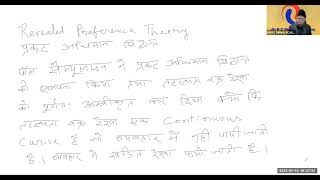 Revealed Preference Theory
प्रकट अधिमान सिद्धान्त
सैम्युलसन ने प्रकट अधिमान सिद्धान्त
की स्थापना किया तथा तटस्थता वक्र रेखा
को पूर्णतः अस्वीकृत कर दिया क्योंकि
तटस्थता वक्र रेखा एक Continuous
Curve है जो व्यवहार में नहीं पायी जाती
है। व्यवहार में खंडित रेखा पायी जाती है।